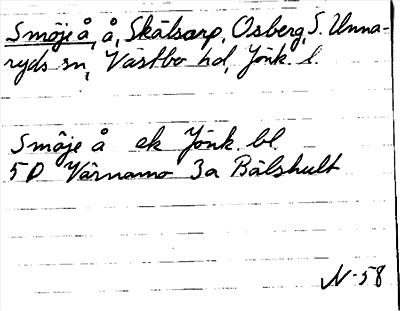 Smöje å, å, Skälsarp, Osberg, S. Unna-
ryds sn, Västbo hd, Jönk. l.
Smöje å ek Jönk. bl.
5 D Värnamo 3a Bälshult
N-58